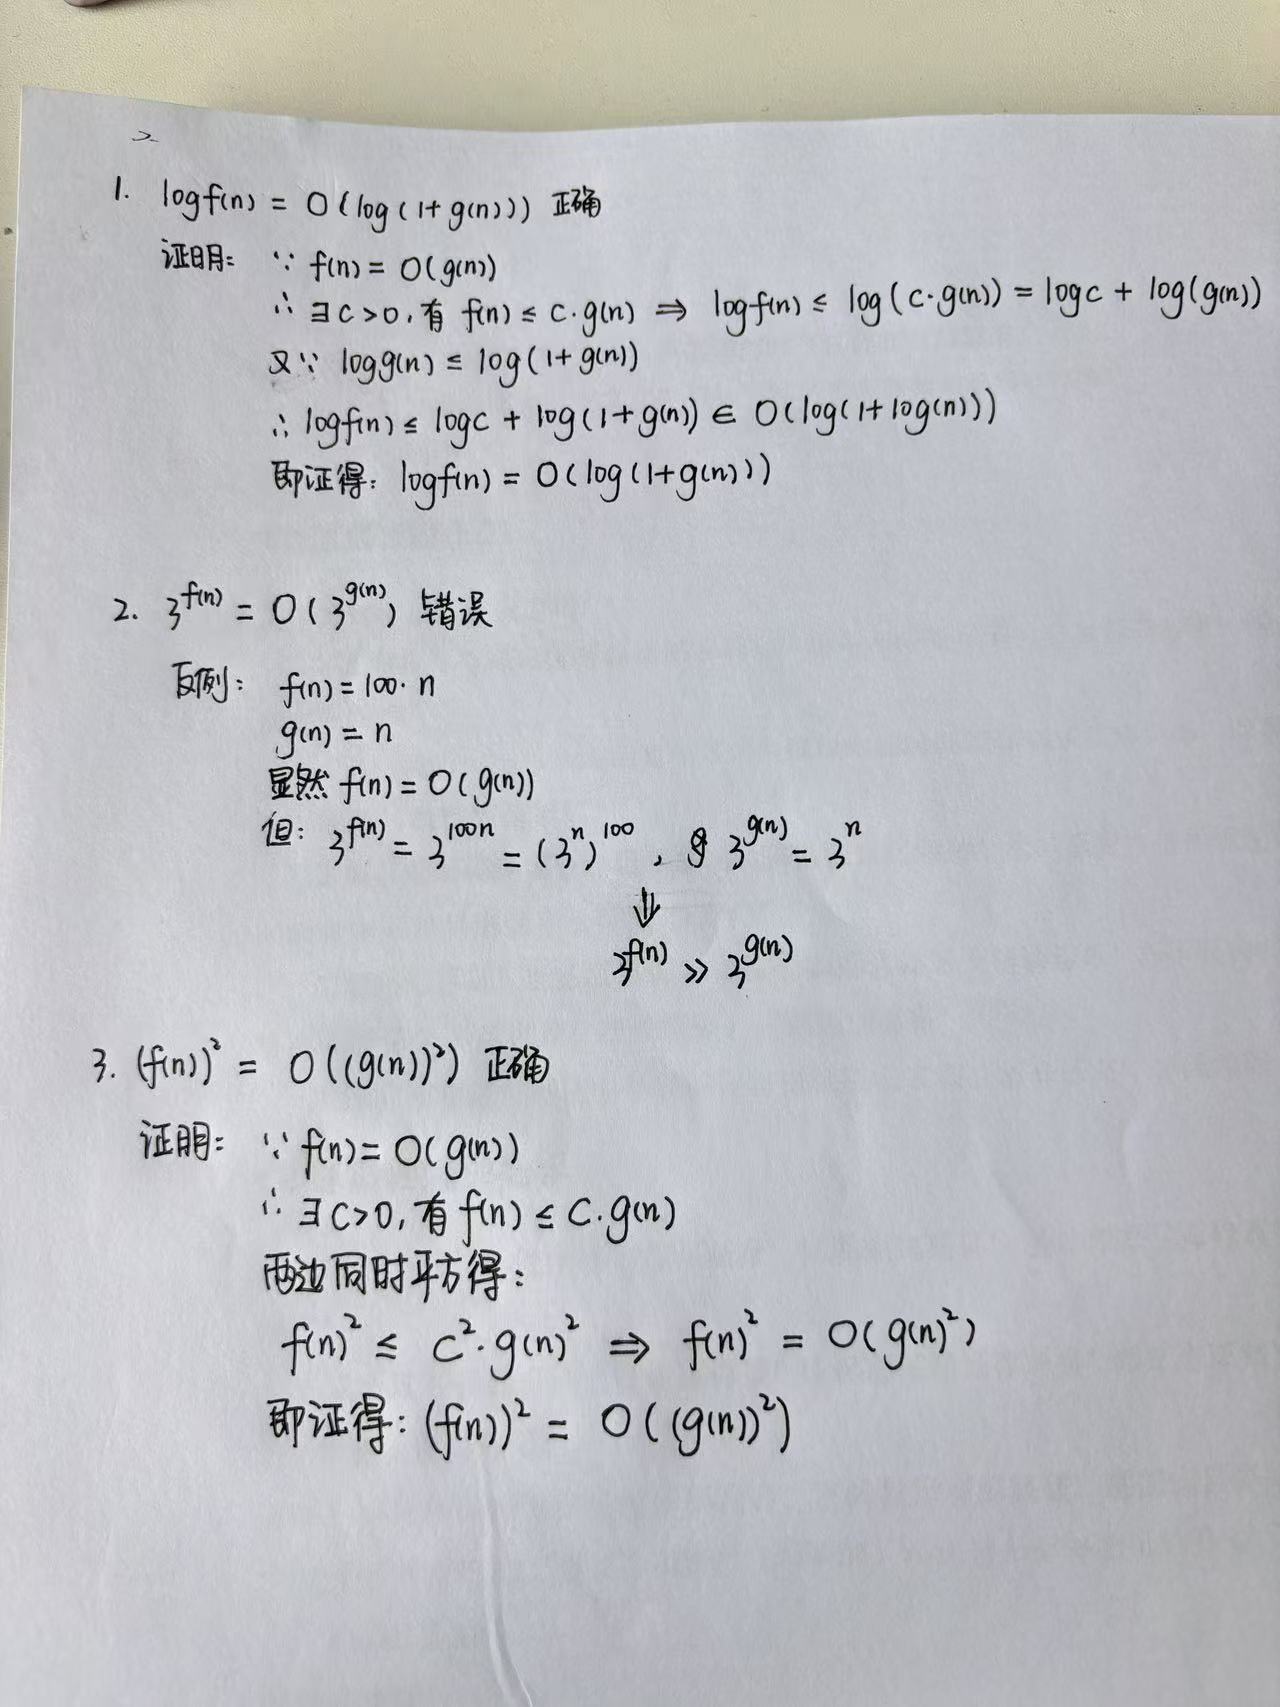 2
1. logf(n) = O(log(1+g(n))) 正确
证明: ∵ f(n) = O(g(n))
∴ ∃c>0, 有 f(n) ≤ c·g(n) ⇒ logf(n) ≤ log(c·g(n)) = logc + log(g(n))
又∵ logg(n) ≤ log(1+g(n))
∴ logf(n) ≤ logc + log(1+g(n)) ∈ O(log(1+log(n)))
即证得: logf(n) = O(log(1+g(n)))
2. 3^f(n) = O(3^g(n)) 错误
反例: f(n) = 100·n
g(n) = n
显然 f(n) = O(g(n))
但: 3^f(n) = 3^100n = (3^n)^100, 3^g(n) = 3^n
⇓
3^f(n) >> 3^g(n)
3. (f(n))² = O((g(n))²) 正确
证明: ∵ f(n) = O(g(n))
∴ ∃c>0, 有 f(n) ≤ c·g(n)
两边同时平方得:
f(n)² ≤ c²·g(n)² ⇒ f(n)² = O(g(n)²)
即证得: (f(n))² = O((g(n))²)